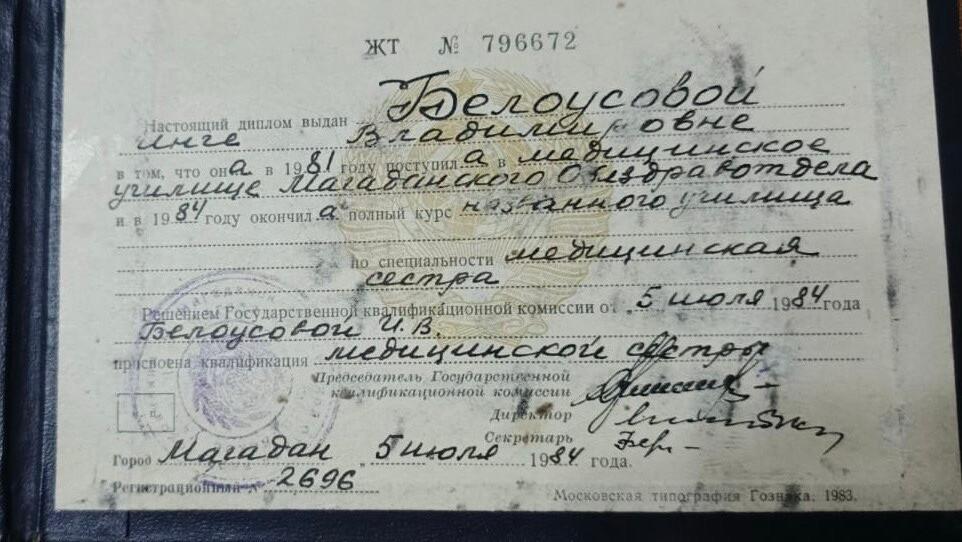 ЖТ № 796672
Настоящий диплом выдан Белоусовой
Инге Владимировне
в том, что она в 1981 году поступила в медицинское
училище Магаданского Облздравотдела
и в 1984 году окончила полный курс названного училища
по специальности медицинская
сестра
Решением Государственной квалификационной комиссии от 5 июля 1984 года
Белоусовой И.В.
присвоена квалификация медицинской сестры
Председатель Государственной
квалификационной комиссии
Директор
Секретарь
М. п.
Город Магадан 5 июля 1984 года.
Регистрационный № 2696
Московская типография Гознака. 1983.